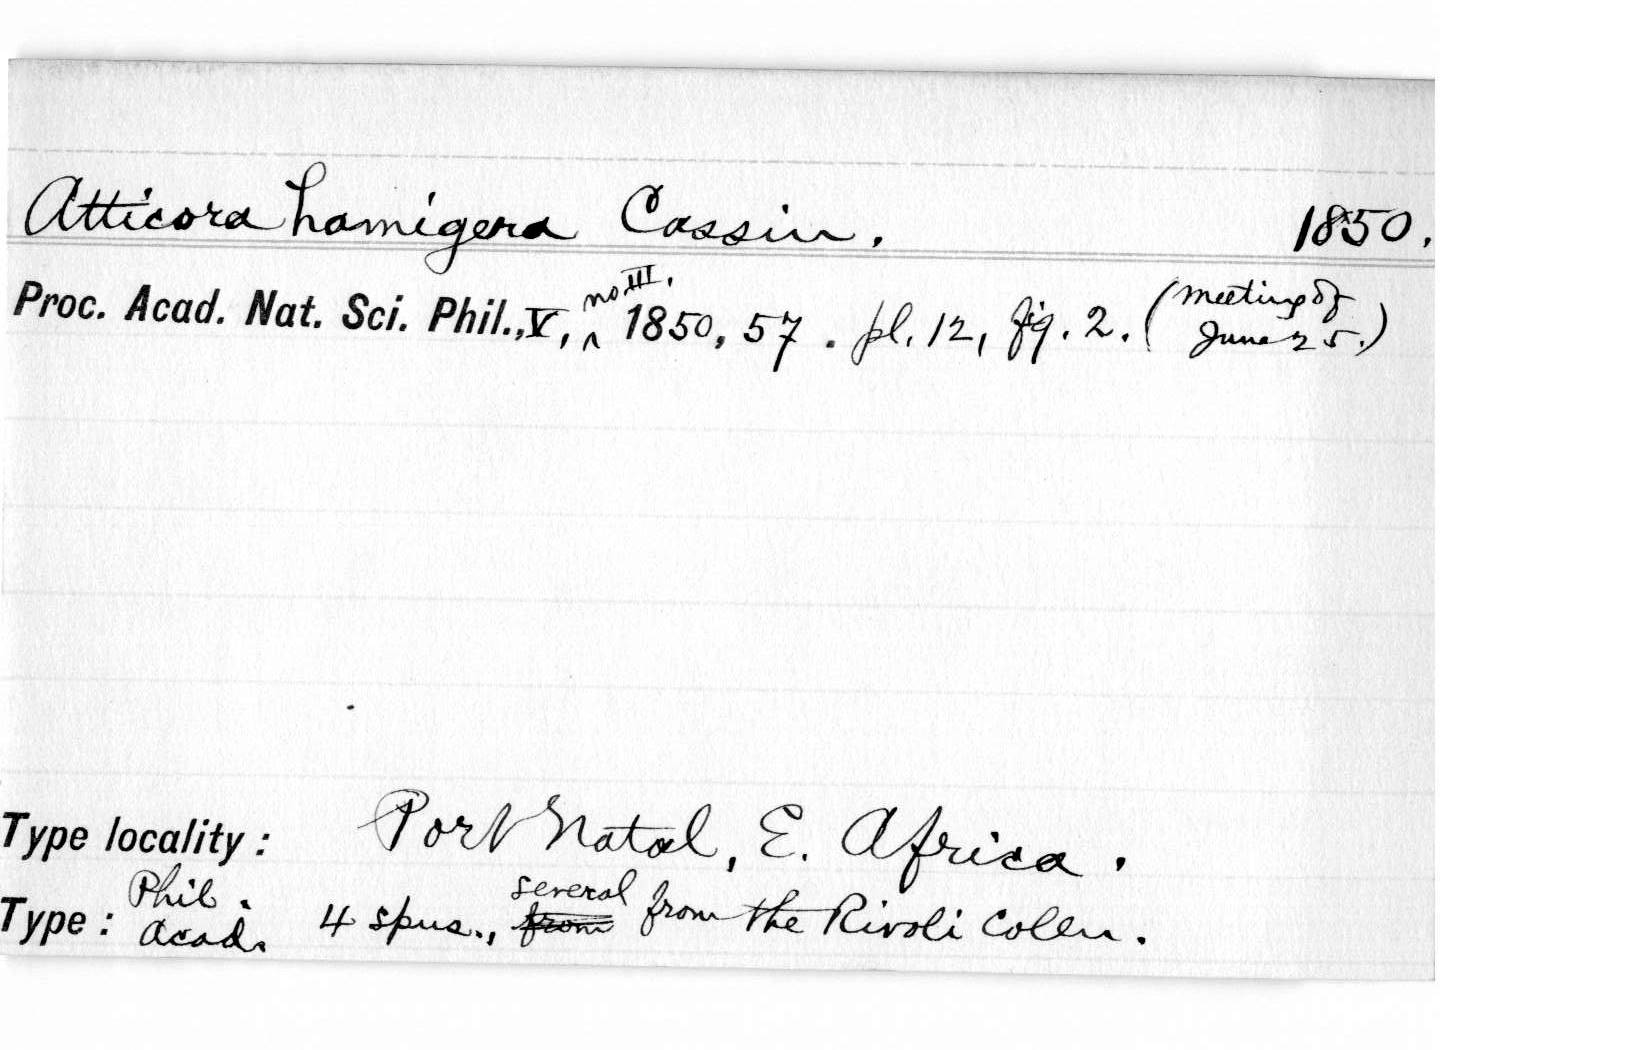 Atticora hamigera Cassin. 1850.
Proc. Acad. Nat. Sci. Phil., V, no. III. 1850, 57. pl. 12, fig. 2. (meeting of June 25.)
Type locality: Port Natal, E. Africa.
Type: Phil. Acad. 4 spns., from several from the Rivoli Colln.